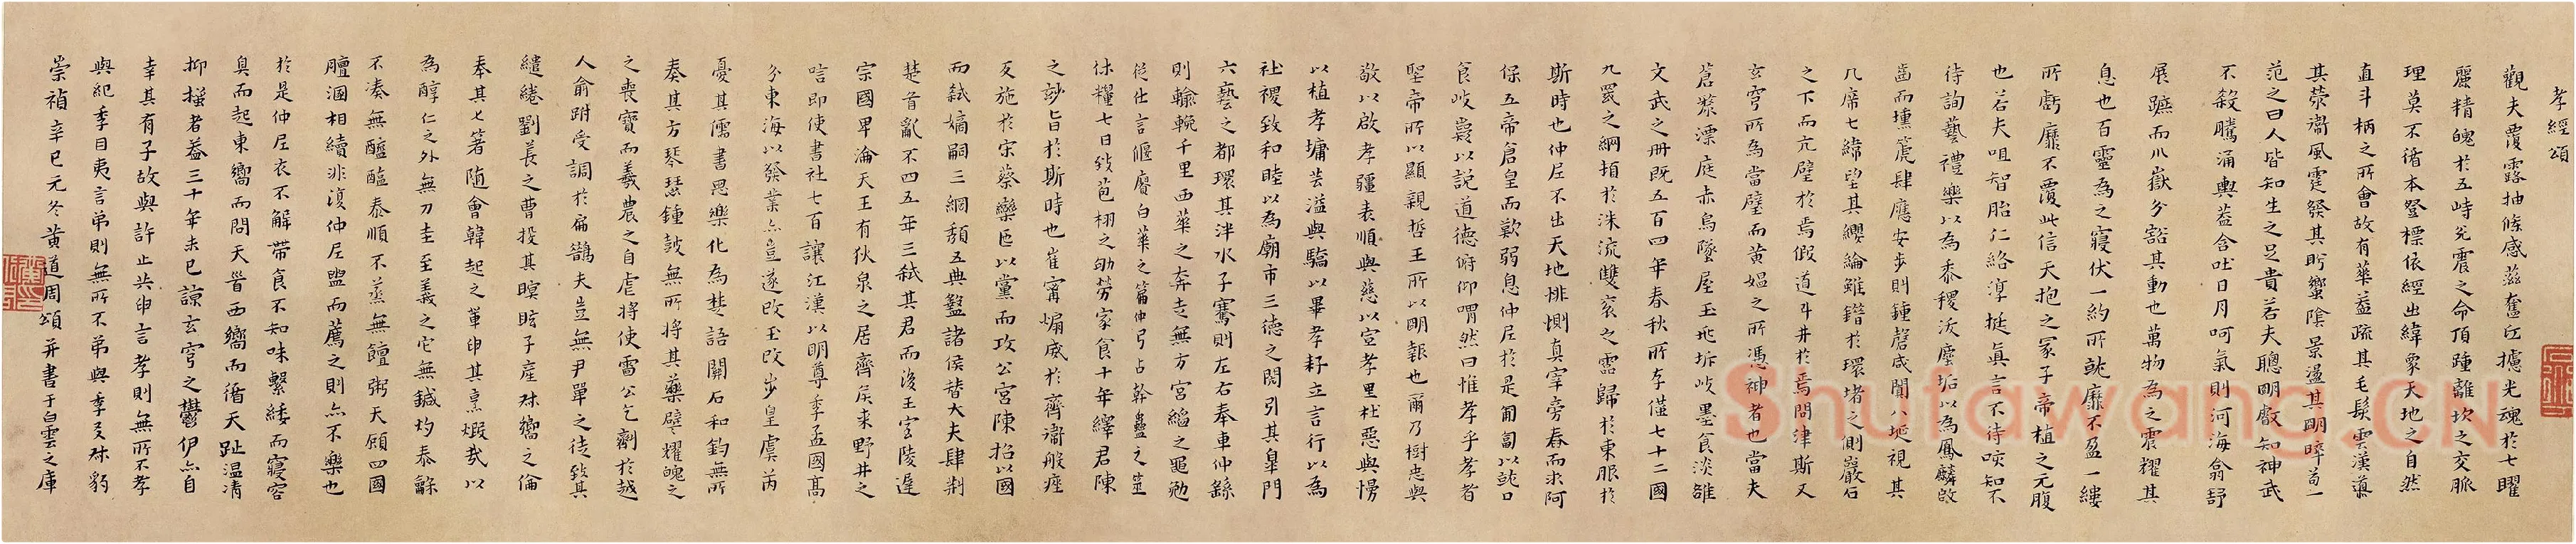 孝經頌
觀夫覆露抽條感滋奮
光魂於七曜
麗精魄於五峙
震之命頂踵離坎之交脈
理莫不循本發標依經出緯象天地之自然
直斗柄之所會故有華蓋疏其毛髮雲漢
其榮衞風霆發其
陰景盪其明
苟一
范之曰人皆知生之足貴若夫聰明睿知神武
不殺騰涌輿蓋含吐日月呵氣則河海翕舒
展
而川嶽分豁其動也萬物為之震耀其
息也百靈為之寢伏一約所
靡不盈一縷
所虧靡不覆此信天抱之冢子帝植之元腹
也若夫咀智胎仁絡淳挺真言不待
知不
待詢藝禮樂以為黍稷
塵垢以為鳳麟啟
齒而壎篪肆應安步則鍾磬咸聞八埏視其
几席七緯望其纓綸雖錯於環堵之側巖石
之下而亢璧於焉假道斗井於焉問津斯又
玄穹所為當璧而黃媼之所憑神者也當夫
蒼
漂庭赤烏墜屋玉
坼
墨食淡雒
文武之冊既五百四年春秋所存僅七十二國
九罭之綱頓於洙流雙袞之
歸於東服於
斯時也仲尼不出天地悱惻真宰旁春而求阿
保五帝倉皇而歎弱息仲尼於是匍匐以就口
食岐嶷以說道德俯仰喟然曰惟孝乎孝者
聖帝所以顯親哲王所以明報也爾乃樹忠與
敬以啟孝疆表順與慈以宣孝里杜惡與慢
以植孝墉
溢與驕以畢孝耔立言行以為
社禝致和睦以為廟市三德之閎引其皋門
六藝之都環其泮水子騫則左右奉車仲繇
則輸輓千里西華之奔走無方宮縚之黽勉
從仕言偃賡白華之篇仲弓占幹蠱之筮
休糧七日
苞栩之劬勞家食十年繹君陳
之
旨於斯時也崔甯煽威於齊衞般痤
反施於宋蔡欒
以黨而攻公宮陳招以國
而弒嫡嗣三綱頹五典
諸侯替大夫肆荆
楚首亂不四五年三弒其君而後王室陵遲
宗國卑淪天王有狄泉之居齊侯來野井之
唁即使書社七百讓江漢以明尊季孟國高
分東海以發業亦豈遂改玉改步皇虞芮
憂其儒書思樂化為楚語關石和鈞無所
奏其方琴瑟鍾鼓無所將其藥璧耀魄之
之喪寶而羲農之自虐將使雷公乞劑於越
人俞跗受調於扁鵲夫豈無尹單之徒致其
繾綣劉萇之曹投其暝眩子產叔嚮之倫
奉其匕箸隨會韓起之輩申其烹煆哉以
為醇仁之外無刀圭至義之它無鍼灼泰龢
不湊無醞醢泰順不蒸無饘粥天頋四國
膻涸相續非復仲尼盥而薦之則亦不樂也
於是仲尼衣不解帶食不知味繫緌而寢容
臭而起東嚮而問天
西嚮而循天趾温凊
抑搔者葢三十年未已諒玄穹之鬱伊亦自
幸其有子故與許止共申言孝則無所不孝
與紀季目夷言弟則無所不弟與季友叔豹
崇禎辛巳元冬黃道周頌并書于白雲之庫
Shufawang.CN